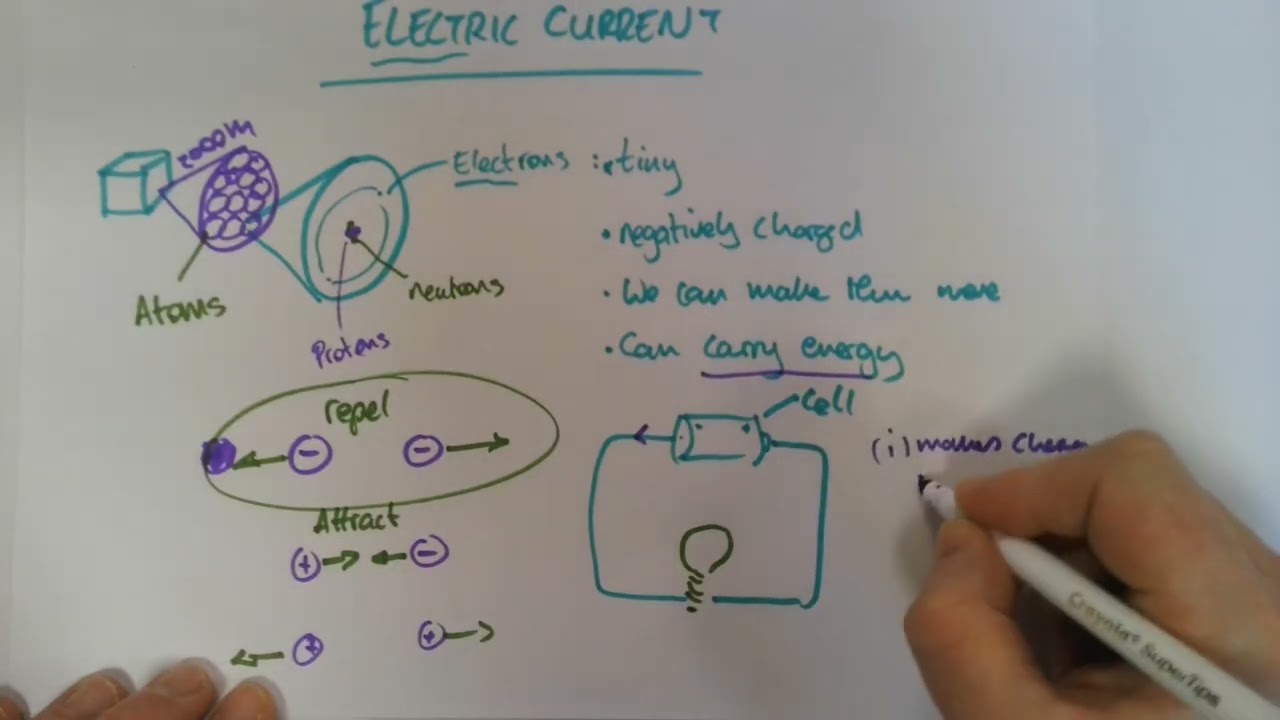 ELECTRIC CURRENT
zoom
Electrons : • tiny
• negatively charged
• We can make them move
• Can carry energy
Atoms
neutrons
Protons
repel
- -
Attract
+ -
+ +
Cell
- +
(i) makes
Crayola SuperTips